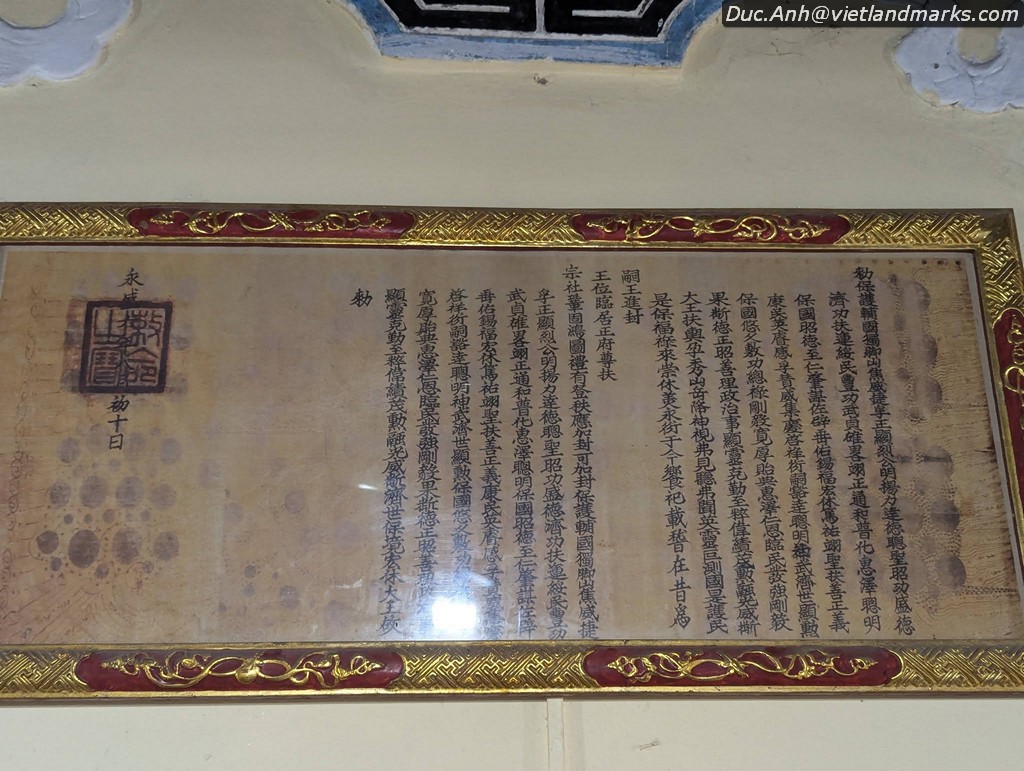 Duc.Anh@vietlandmarks.com
勅保護輔國獨脚山集威捷孚正顯烈公明揚力達德聰聖昭功盛德
濟功扶運綏民豊功武貞確畧翊正通和普化惠澤聰明
保國昭德至仁肇謨佐辟垂佑錫福宏休篤祐翊聖扶善正義
康民英睿感孚貴威集慶啓祥衍嗣裕達聰明神武濟世顯勲
保國悠久敷功總祿剛毅寬厚貽典惠澤仁恩臨民敷政強剛毅
果斷德正昭善理政治事顯靈克勤至粹偉績茂勲融光威斷
大王扶輿孕秀山岳降神視弗見聽弗聞英靈叵測國是護民
是保福祿來崇休美永衍于今饗祀載稽在昔爲
嗣王進封
王位臨居正府尊扶
宗社鞏固鴻圖禮有登秩應加封可加封保護輔國獨脚山集威捷
孚正顯烈公明揚力達德聰聖昭功盛德濟功扶運綏民豊功
武貞確畧翊正通和普化惠澤聰明保國昭德至仁肇謨佐辟
垂佑錫福宏休篤祐翊聖扶善正義康民英睿感孚貴威集慶
啓祥衍嗣裕達聰明神武濟世顯勲保國悠久敷功
寬厚貽典惠澤仁恩臨民敷政強剛毅果斷德正昭善理政
顯靈克勤至粹偉績茂勲融光威斷濟世保民宏休大王故
勅
永盛
初十日
敕命之寶